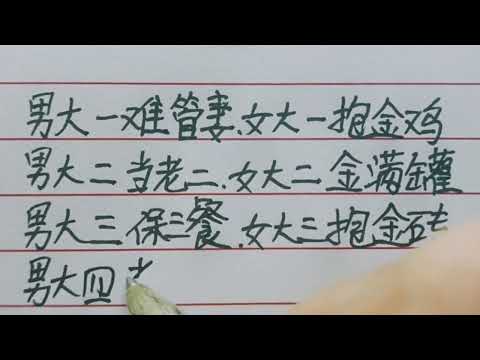 男大一难管妻、女大一抱金鸡
男大二当老二、女大二金满罐
男大三保三餐、女大三抱金砖
男大四